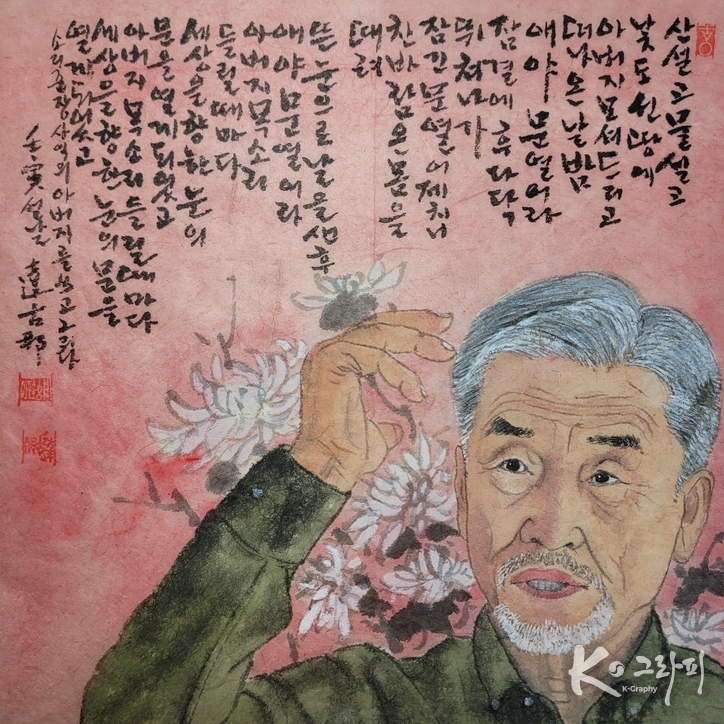 산설고물설고
낯도선땅에
아버지모셔드리고
떠나온날밤
얘야 문열어라
잠결에후다닥
뛰쳐나가
잠긴문열어제치니
찬바람온몸을
때려
뜬눈으로날을샌후
얘야 문열어라
아버지목소리
들릴때마다
세상을향한눈의
문을열게되었고
아버지목소리들릴때마다
세상을향한눈의문을
열게되었고
소리꾼장사익의아버지를쓰고그리다
壬寅설날
K 그라피
K-Graphy